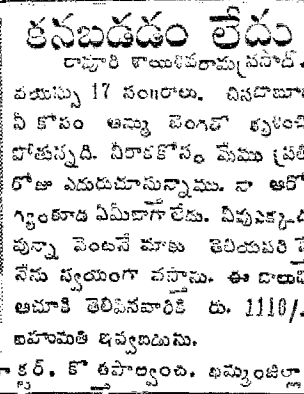 కనబడడం లేదు
రావూరి శాయిశివరామ ప్రసాద్.
వయస్సు 17 సం॥రాలు. చినబాబూ
నీ కోసం అమ్మ బెంగతో కృశించి
పోతున్నది. నీరాకకోసం మేము ప్రతి
రోజు ఎదురుచూస్తున్నాము. నా ఆరో
గ్యంకూడ ఏమీబాగా లేదు. నీవుఎక్కడ
వున్నా వెంటనే మాకు తెలియపరి స్తే
నేను స్వయంగా వస్తాను. ఈ బాలుడి
ఆచూకి తెలిపినవారికి రు. 1116/-
బహుమతి ఇవ్వబడును.
క్టర్. కొత్తపాల్వంచ. ఖమ్మంజిల్లా